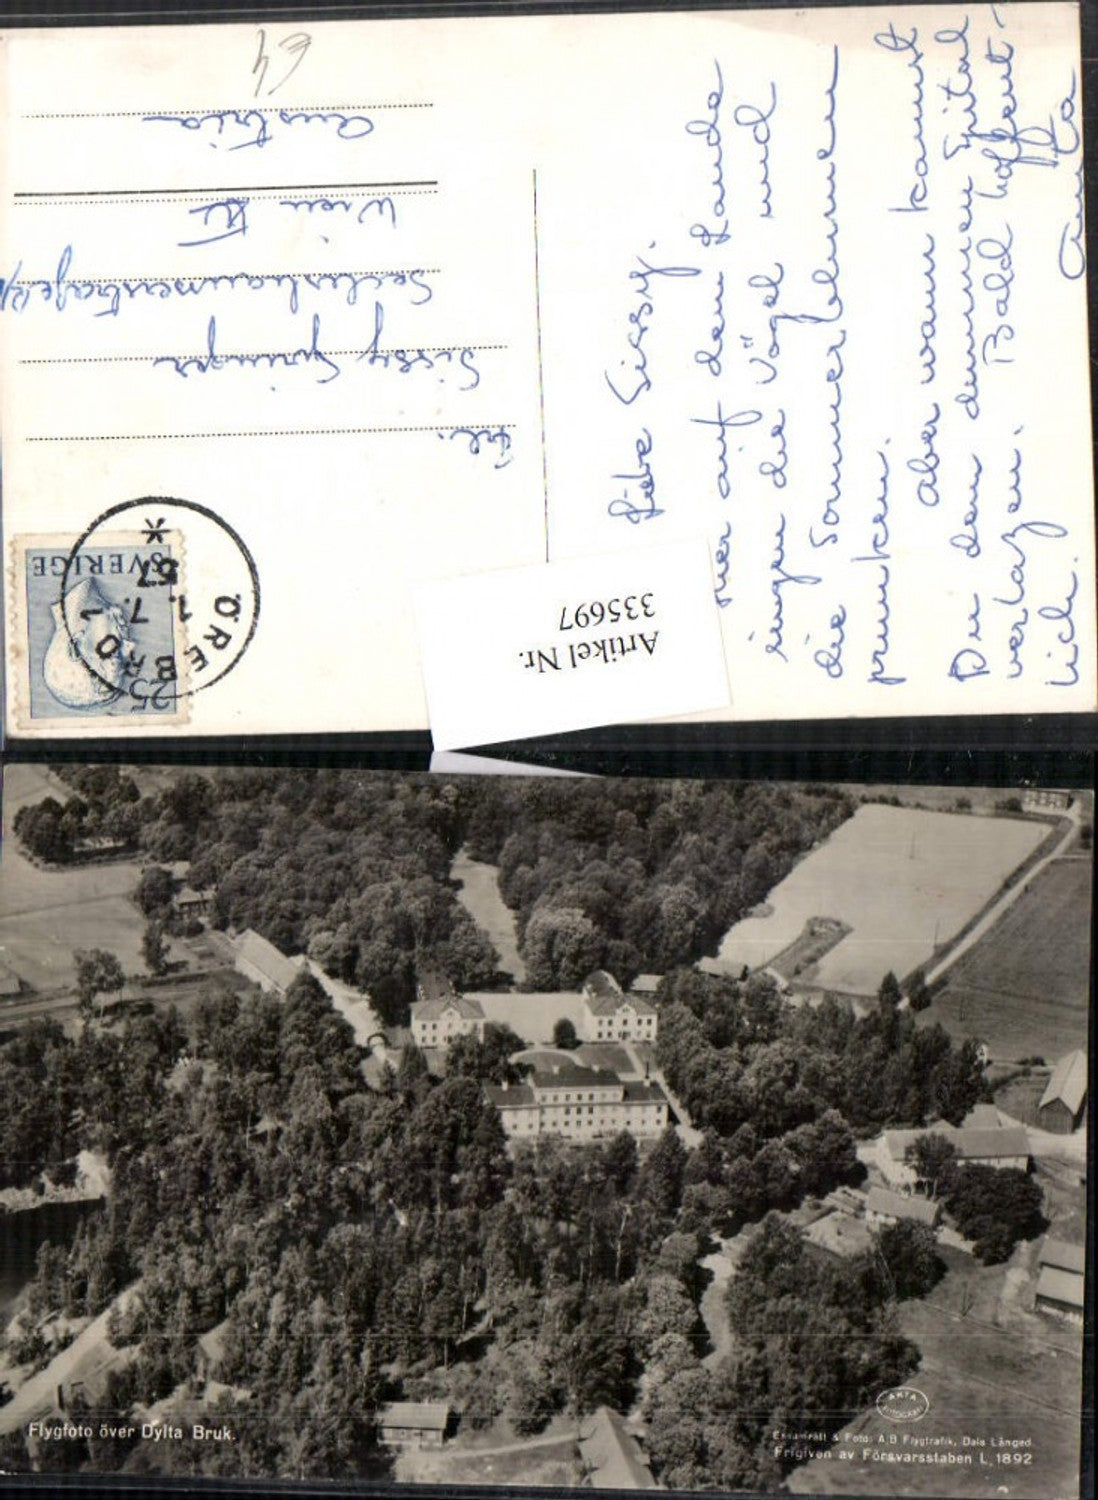 €4
Liebe Sissy.
Hier auf dem Lande
singen die Vögel und
die Sommerfahnen
prunken.
Aber wann kannst
Du den dummen Spital
verlaßen. Bald hoffent-
lich.
Anita
Frl.
Sissy Springer
Wien
Austria
SVERIGE
25
ÖREBRO 1
1. 7.
57
Artikel Nr.
335697
Flygfoto över Dylta Bruk.
ÄKTA
FOTOGRAFI
Ensamrätt & Foto: A.B Flygtrafik, Dals Långed.
Frigiven av Försvarsstaben L. 1892